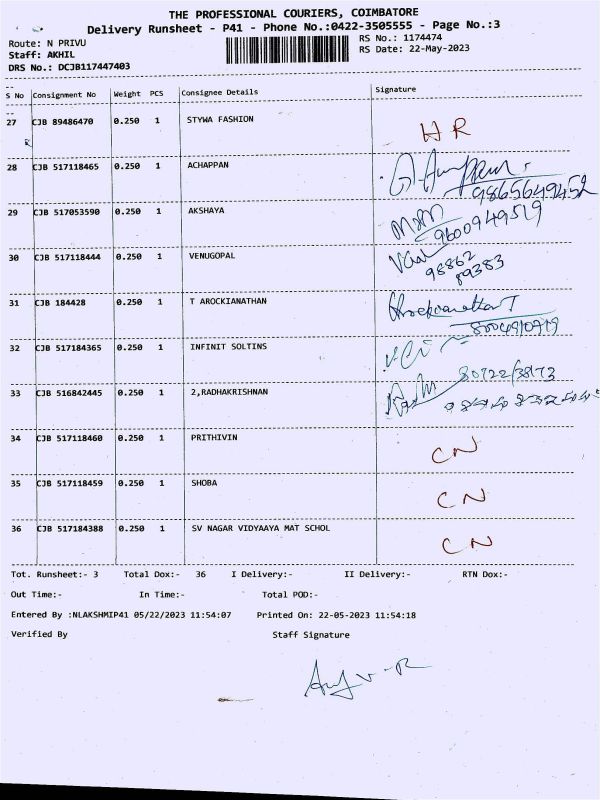 THE PROFESSIONAL COURIERS, COIMBATORE
Delivery Runsheet - P41 - Phone No.:0422-3505555 - Page No.:3
Route: N PRIVU RS No.: 1174474
Staff: AKHIL RS Date: 22-May-2023
DRS No.: DCJB117447403
S No Consignment No Weight PCS Consignee Details Signature
27 CJB 89486470 0.250 1 STYWA FASHION HR
28 CJB 517118465 0.250 1 ACHAPPAN
9865649452
29 CJB 517053590 0.250 1 AKSHAYA
9600949519
30 CJB 517118444 0.250 1 VENUGOPAL
98862
89383
31 CJB 184428 0.250 1 T AROCKIANATHAN Arockianathan T
32 CJB 517184365 0.250 1 INFINIT SOLTINS
33 CJB 516842445 0.250 1 2,RADHAKRISHNAN
34 CJB 517118460 0.250 1 PRITHIVIN CN
35 CJB 517118459 0.250 1 SHOBA CN
36 CJB 517184388 0.250 1 SV NAGAR VIDYAAYA MAT SCHOL CN
Tot. Runsheet:- 3 Total Dox:- 36 I Delivery:- II Delivery:- RTN Dox:-
Out Time:- In Time:- Total POD:-
Entered By :NLAKSHMIP41 05/22/2023 11:54:07 Printed On: 22-05-2023 11:54:18
Verified By Staff Signature